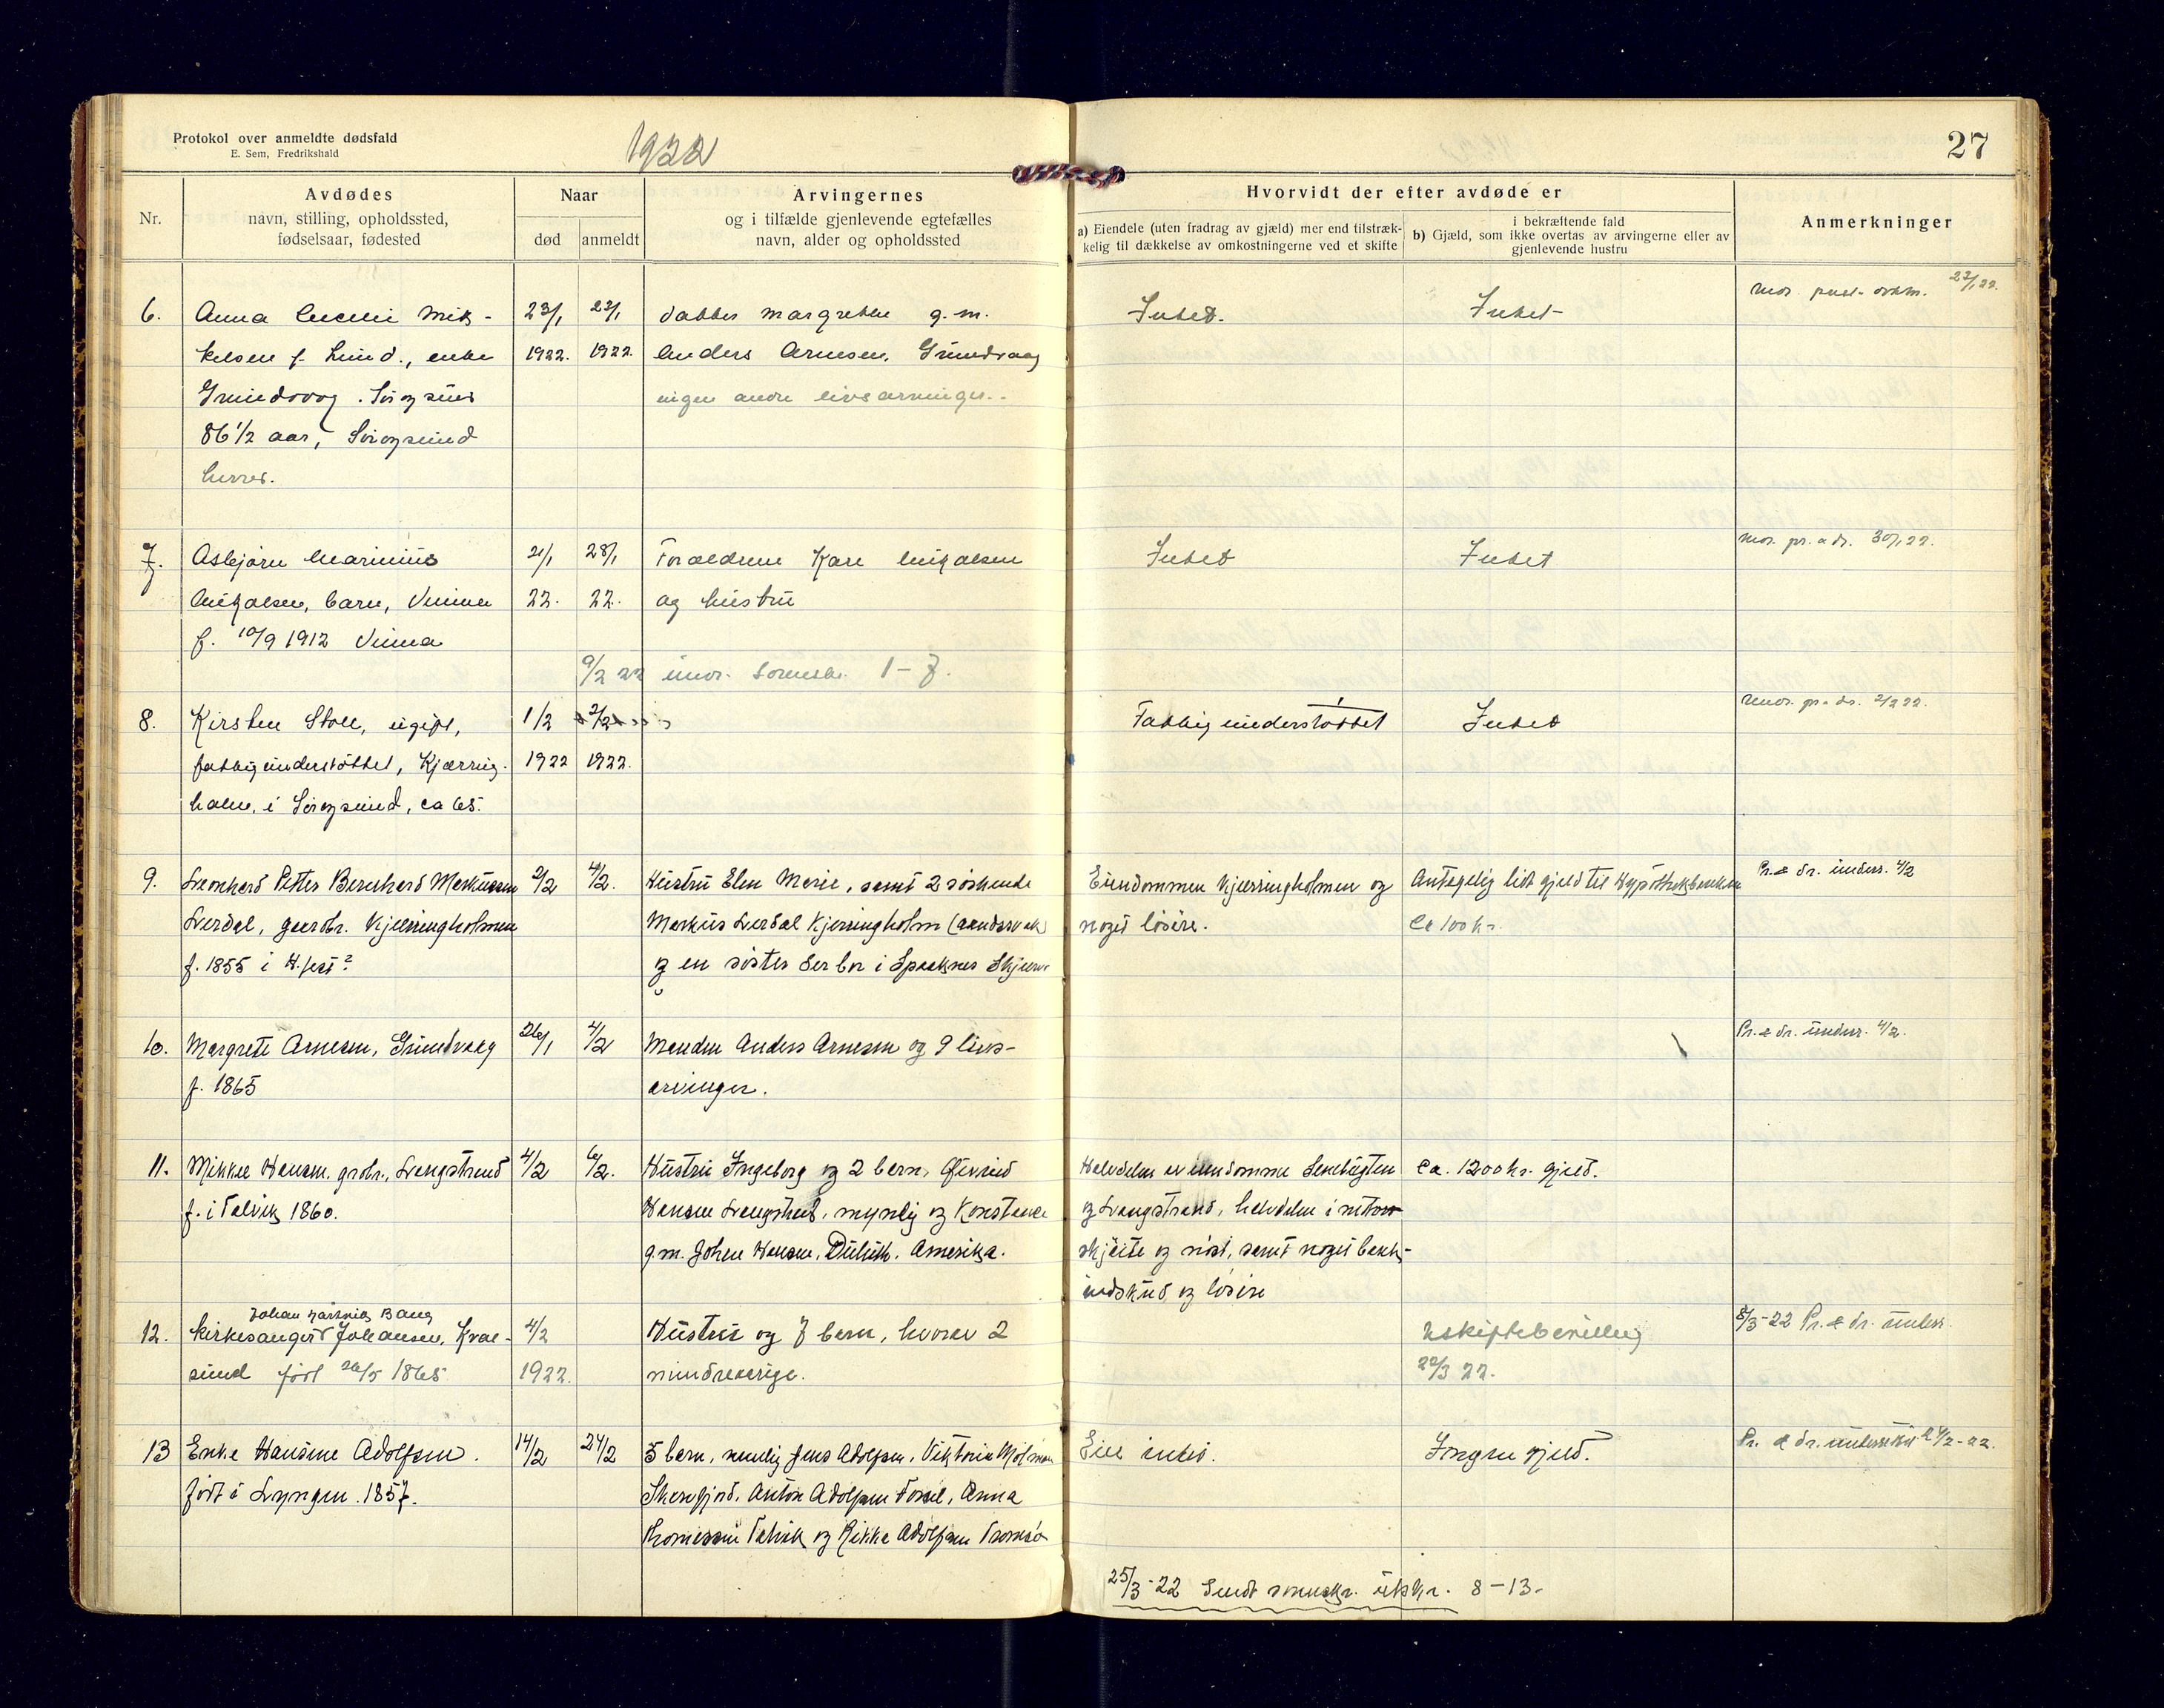 Protokol over anmeldte dødsfald
E. Sem, Fredrikshald
1922
27
Nr.
Avdødes
navn, stilling, opholdssted,
fødselsaar, fødested
Naar
død
anmeldt
Arvingernes
og i tilfælde gjenlevende egtefælles
navn, alder og opholdssted
Hvorvidt der efter avdøde er
a) Eiendele (uten fradrag av gjæld) mer end tilstræk-
kelig til dækkelse av omkostningerne ved et skifte
i bekræftende fald
b) Gjæld, som ikke overtas av arvingerne eller av
gjenlevende hustru
Anmerkninger
6.
Anna Mik-
kelsen f. Lund., enke
Grundvag. Sørøsund
86 1/2 aar, Sørøysund
herred.
23/1
1922.
23/1
1922.
datter Margrethe g. m.
Anders Arnesen, Grundvaag
ingen andre livsarvinger.
Intet.
Intet
23/1 22.
7.
Asbjørn Marinius
Mikalsen, barn,
f. 10/9 1912
21/1
22.
28/1
22.
Forældrene Kare Mikalsen
og hustru
Intet
Intet
30/1 22.
9/2 22 sorenskr. 1-7.
8.
Kirsten ugift,
fattigunderstøttet, Kjærring-
holm, i Sørøysund, ca 65.
1/2
1922
2/2
1922.
Fattigunderstøttet
Intet
2/2 22.
9.
Leonhard Petter Bernhard Markussen
Lerdal, gaardbr. Kjærringholmen
f. 1855 i H.fest?
2/2
4/2.
Hustru Elen Marie, samt 2 søskende
Markus Lerdal Kjerringholm
og en søster der bor i Skjærvø
Eiendommen Kjærringholmen og
noget løsøre.
Antagelig lidt gjeld til Hypothekbanken
Ca 100 kr.
Pr. & dr. underr. 4/2
10.
Margrete Arnesen, Grundvaag
f. 1865
26/1
4/2
Manden Anders Arnesen og 9 livs-
arvinger.
Pr. & dr. underr. 4/2.
11.
Mikkel Hansen, grdbr., Langstrand
f. i Talvik 1860.
4/2
6/2.
Hustru Ingeborg og 2 barn, Øivind
Hansen Langstrand, myndig og Konstance
g.m. Johan Hansen, Duluth, Amerika.
Halvdelen av eiendommen
og Langstrand, halvdelen i motor-
skjøite og nøst, samt noget bank-
indskud og løsøre
Ca. 1200 kr. gjeld.
12.
Johan Bang
Kirkesanger Johansen, Kval-
sund født 26/5 1865
4/2
1922.
Hustru og 7 barn, hvorav 2
mindreaarige.
Uskiftebevilling
22/3 22.
8/3-22 Pr. & dr. underr.
13
Enke Hansine Adolfsen.
født i Lyngen. 1857.
14/2
24/2
5 barn, nemlig Jens Adolfsen, Viktoria
Anton Adolfsen Anna
Thomassen Talvik og Rikka Adolfsen Tromsø
Eier intet.
Ingen gjeld.
Pr. & dr. 24/2-22.
25/3-22 Sendt sorenskr. utskr. 8-13.